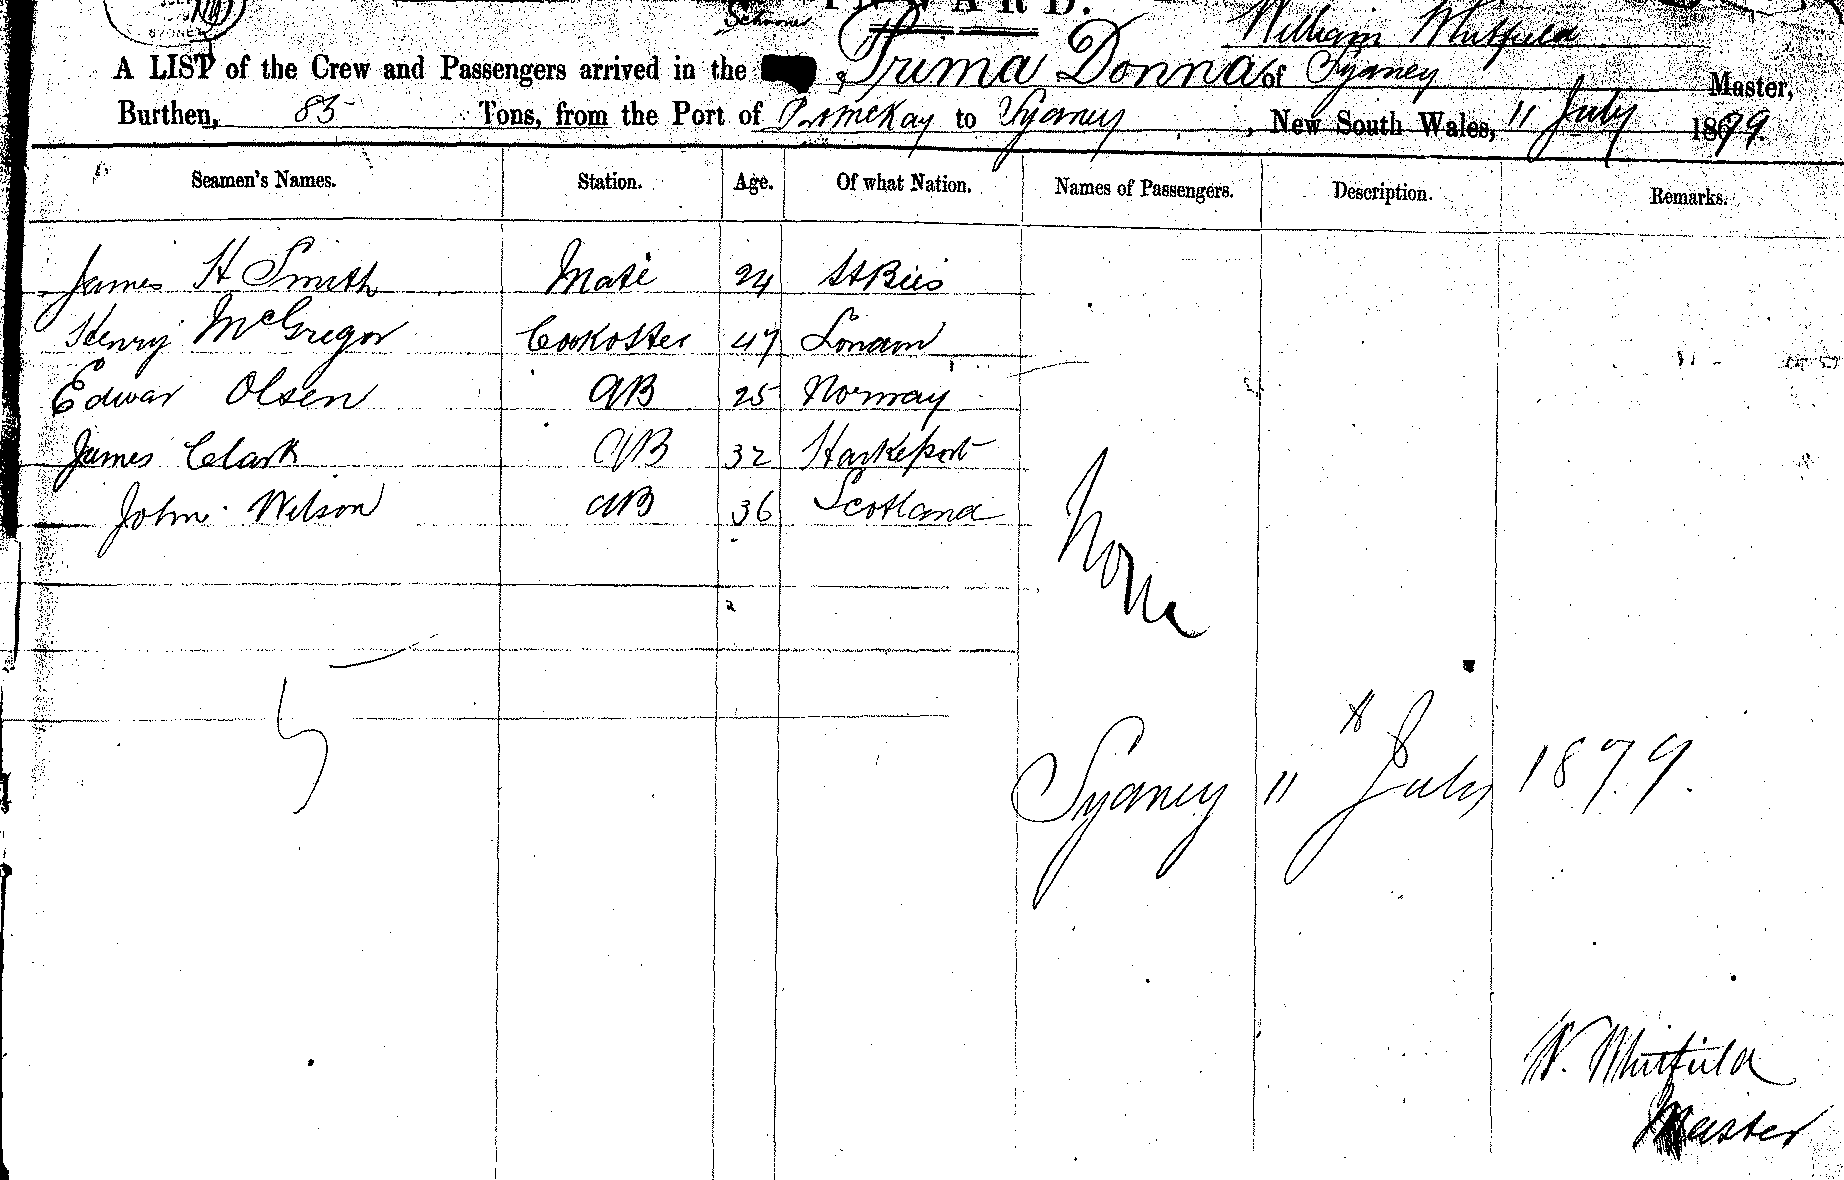 SYDNEY
INWARD.
Schooner
William Whitfield
A LIST of the Crew and Passengers arrived in the Prima Donna of Sydney Master,
Burthen, 85 Tons, from the Port of McKay to Sydney, New South Wales, 11 July 1879.
Seamen's Names. Station. Age. Of what Nation. Names of Passengers. Description. Remarks.
James H Smith Mate 24
Henry McGregor Cook 47 London
Edwar Olsen AB 25 Norway
James Clark AB 32
John Wilson AB 36 Scotland
None
5
Sydney 11th July 1879.
W. Whitfield
Master